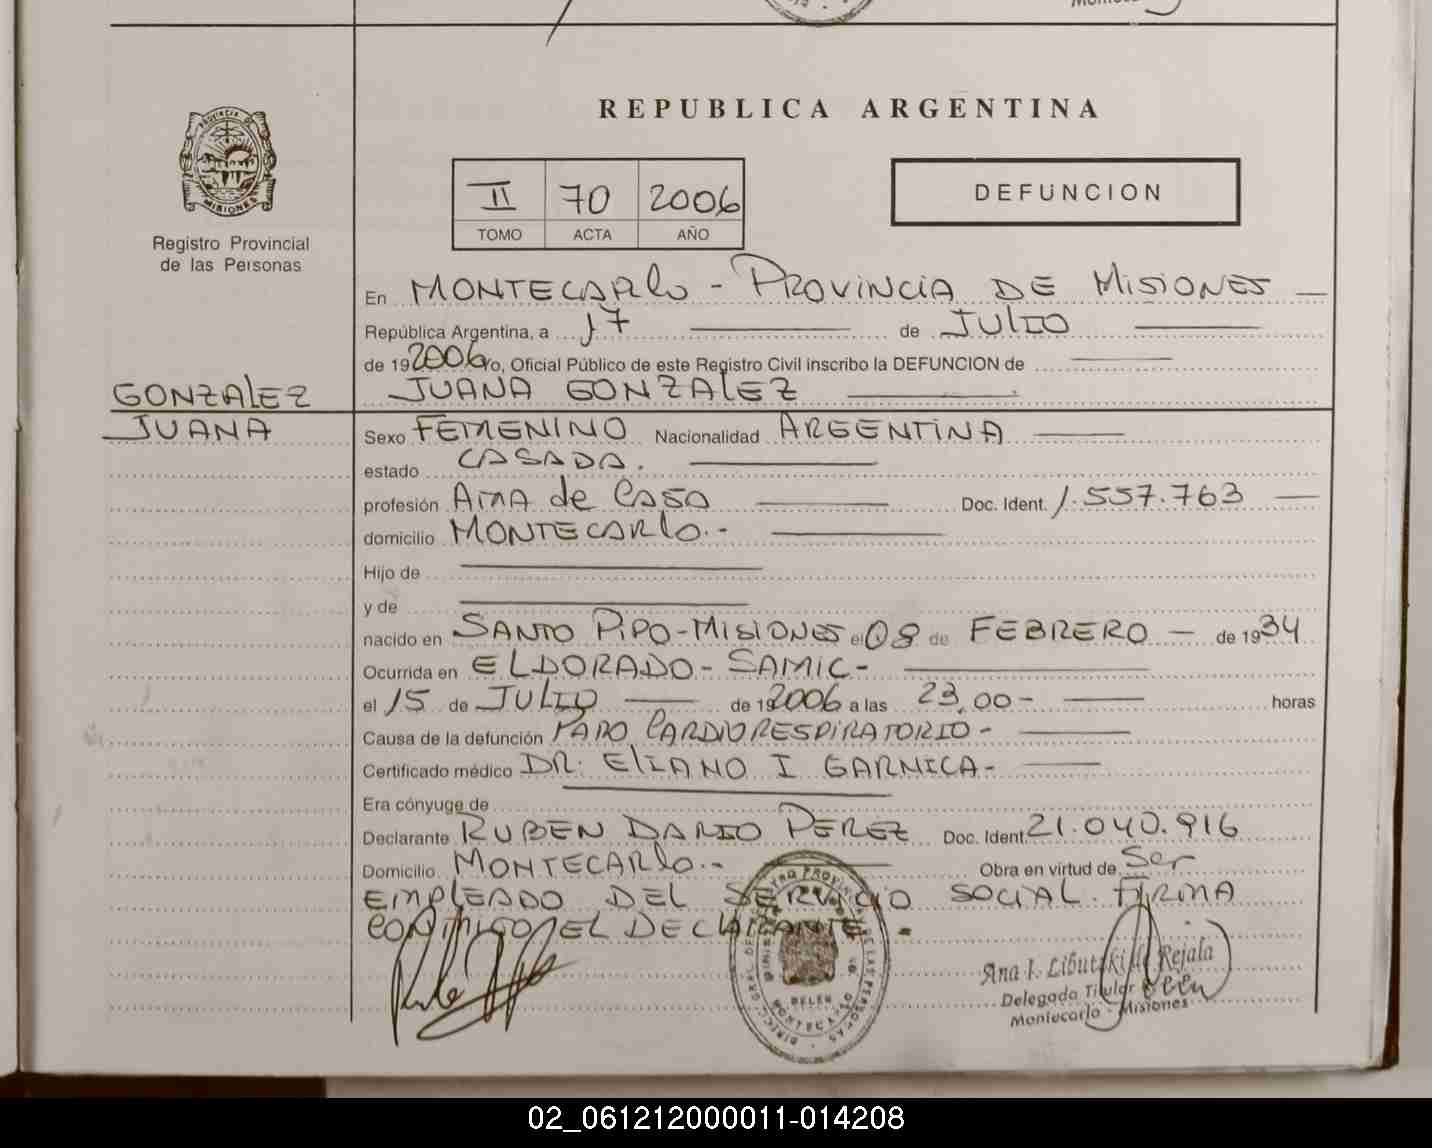 REPUBLICA ARGENTINA
PROVINCIA DE
MISIONES
Registro Provincial
de las Personas
II 70 2006
TOMO ACTA AÑO
DEFUNCION
En MONTECARlo - PROVINCIA DE MISIONES
República Argentina, a 17 de JULIO
de 192006 Yo, Oficial Público de este Registro Civil inscribo la DEFUNCION de
JUANA GONZALEZ
GONZALEZ
JUANA
Sexo FEMENINO Nacionalidad ARGENTINA
estado CASADA.
profesión AMA de CASA Doc. Ident. 1.557.763
domicilio MONTECARlo.-
Hijo de
y de
nacido en SANTO PIPO-MISIONES el 08 de FEBRERO - de 1934
Ocurrida en ELDORADO - SAMIC-
el 15 de JULIO de 192006 a las 23,00- horas
Causa de la defunción PARO CARDIORESPIRATORIO-
Certificado médico DR. ELIANO I GARNICA-
Era cónyuge de
Declarante RUBEN DARIO PEREZ Doc. Ident. 21.040.916
Domicilio MONTECARlo.- Obra en virtud de Ser
EMPLEADO DEL SERVICIO SOCIAL. FIRMA
CONMIGO EL DECLARANTE.-
Ana I. Libutzki de Rejala
Delegada Titular
Montecarlo - Misiones
02_061212000011-014208